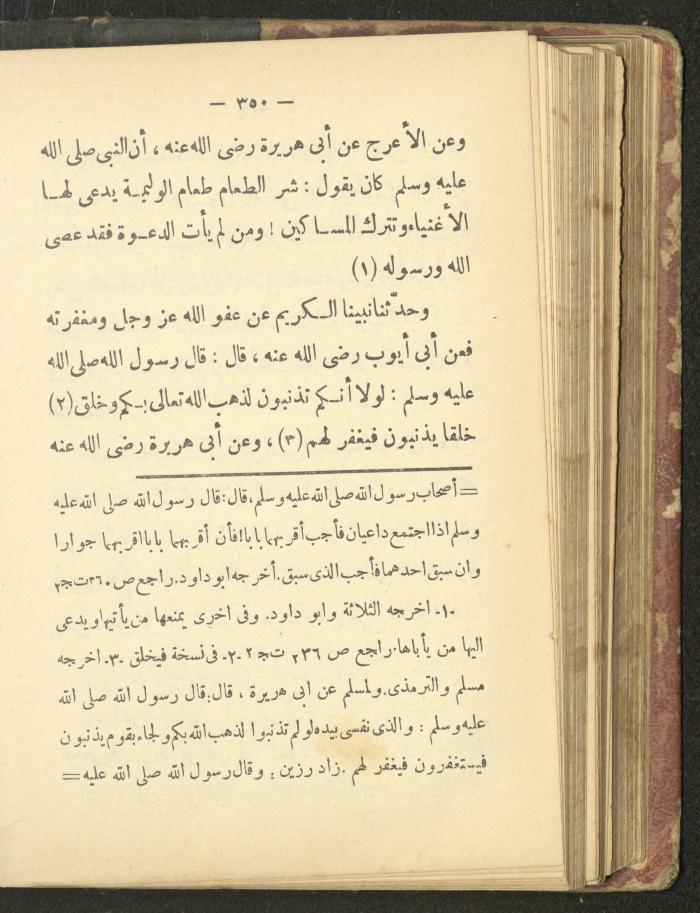 — ٣٥٠ —
وعن الأعرج عن أبى هريرة رضى الله عنه ، أن النبى صلى الله
عليه وسلم كان يقول : شر الطعام طعام الوليمة يدعى لها
الأغنياء وتترك المساكين ! ومن لم يأت الدعوة فقد عصى
الله ورسوله (١)
وحدّثنا نبينا الكريم عن عفو الله عز وجل ومغفرته
فعن أبى أيوب رضى الله عنه ، قال : قال رسول الله صلى الله
عليه وسلم : لولا أنكم تذنبون لذهب الله تعالى بكم وخلق (٢)
خلقا يذنبون فيغفر لهم (٣) ، وعن أبى هريرة رضى الله عنه
= أصحاب رسول الله صلى الله عليه وسلم، قال: قال رسول الله صلى الله عليه
وسلم اذا اجتمع داعيان فأجب أقربهما بابا! فأن أقربهما بابا اقربهما جوارا
وان سبق احدهما فأجب الذى سبق. أخرجه ابو داود. راجع ص ٣٦٠ ت ج ٢
-١- اخرجه الثلاثة وابو داود. وفى اخرى يمنعها من يأتيها ويدعى
اليها من يأباها. راجع ص ٢٣٦ ت ج ٢ -٢- فى نسخة فيخلق -٣- اخرجه
مسلم والترمذى. ولمسلم عن ابى هريرة ، قال: قال رسول الله صلى الله
عليه وسلم : والذى نفسى بيده لو لم تذنبوا لذهب الله بكم ولجاء بقوم يذنبون
فيستغفرون فيغفر لهم . زاد رزين : وقال رسول الله صلى الله عليه =